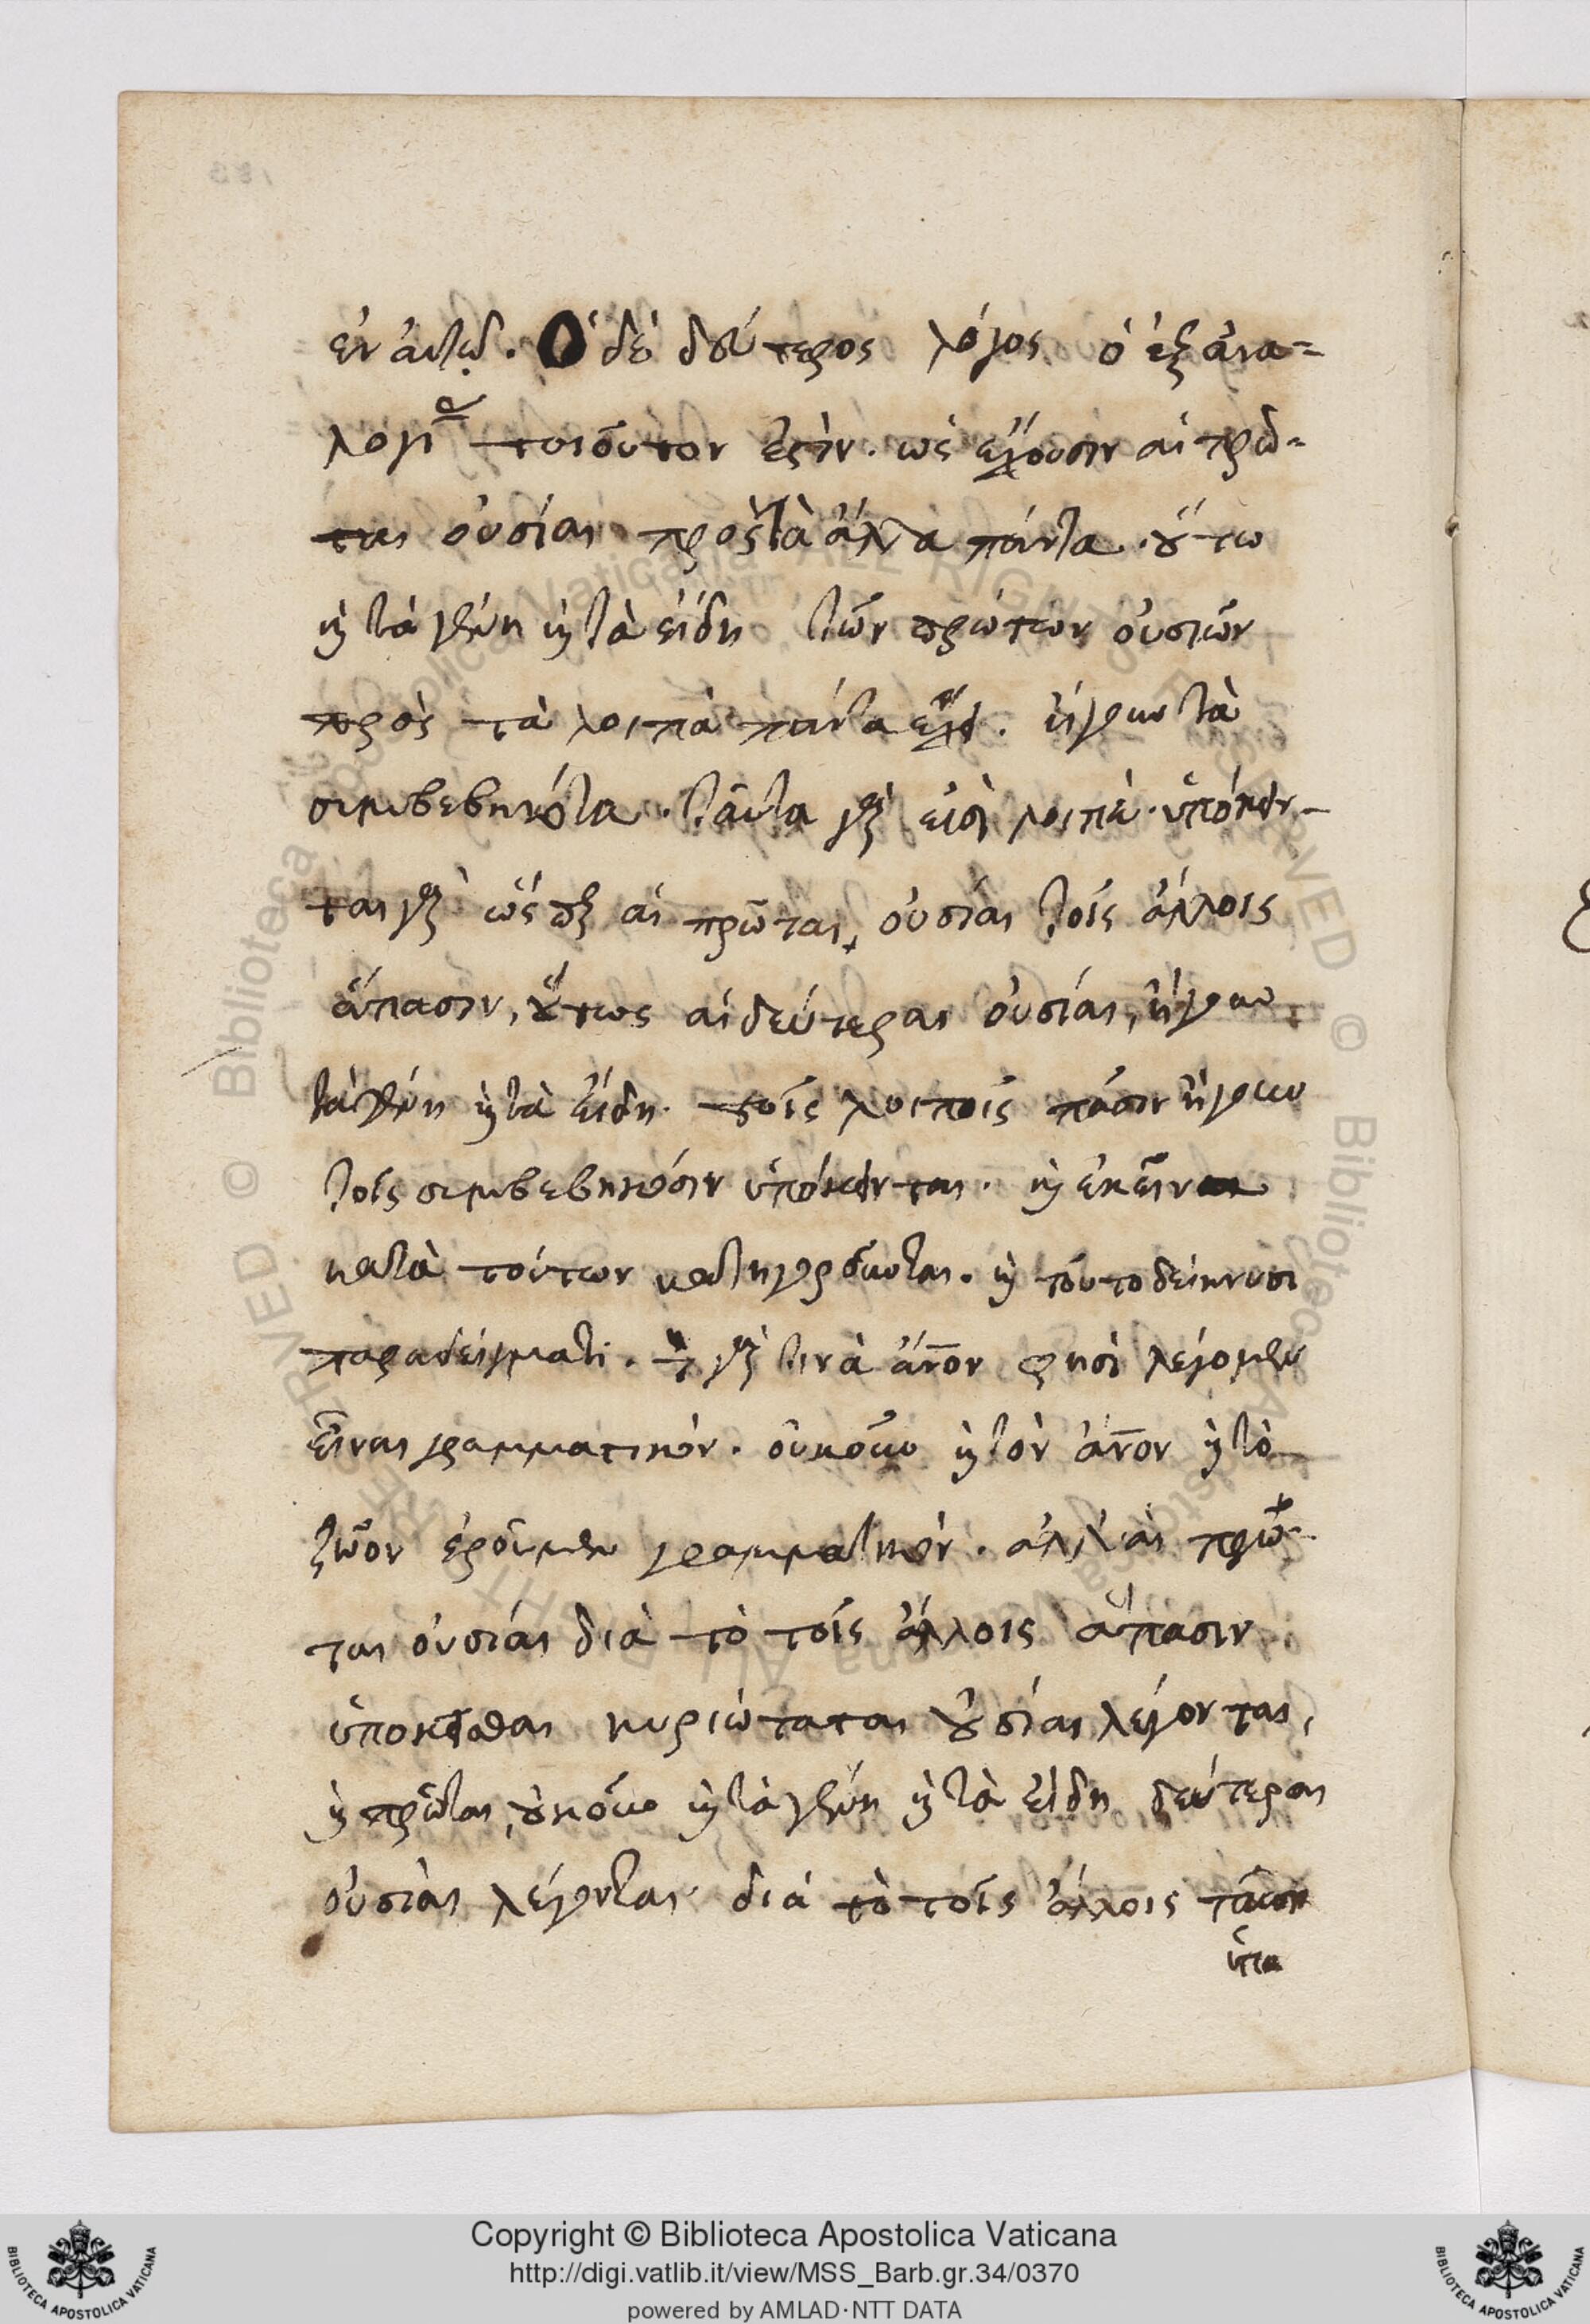 ἐν ἀυτῷ. Ὁ δὲ δεύτερος λόγος ὁ ἐξ ἀνα=
λογίας τοιοῦτον ἐστὶν. ὡς ἔχουσιν αἱ πρῶ=
ται οὐσίαι πρὸς τὰ ἄλλα πάντα. οὕτω
καὶ τὰ γένη καὶ τὰ εἴδη τῶν πρώτων οὐσιῶν
πρὸς τὰ λοιπὰ πάντα ἔχει. ἤγουν τὰ
συμβεβηκότα. ταῦτα γὰρ εἰσὶ λοιπὰ. ὑπόκειν-
ται γὰρ ὥσπερ αἱ πρῶται οὐσίαι τοῖς ἄλλοις
ἅπασιν, οὕτως αἱ δεύτεραι οὐσίαι, ἤγουν
τὰ γένη καὶ τὰ εἴδη. τοῖς λοιποῖς πᾶσιν ἤγουν
τοῖς συμβεβηκόσιν ὑπόκεινται. καὶ ἐκεῖνα
κατὰ τούτων κατηγοροῦνται. καὶ τοῦτο δείκνυσι
παραδείγματι. τὸν γὰρ τινὰ ἄνον φησὶ λέγομεν
εἶναι γραμματικόν. οὐκοῦν καὶ τὸν ἄνον καὶ τὸ
ζῶον ἐροῦμεν γραμματικόν. ἀλλ' αἱ πρῶ-
ται οὐσίαι διὰ τὸ τοῖς ἄλλοις ἅπασιν
ὑποκεῖσθαι κυριώταται οὐσίαι λέγονται,
καὶ πρῶται, οὐκοῦν καὶ τὰ γένη καὶ τὰ εἴδη δεύτεραι
οὐσίαι λέγονται διὰ τὸ τοῖς ἄλλοις πᾶσιν
ὑπο
Copyright © Biblioteca Apostolica Vaticana
http://digi.vatlib.it/view/MSS_Barb.gr.34/0370
powered by AMLAD·NTT DATA